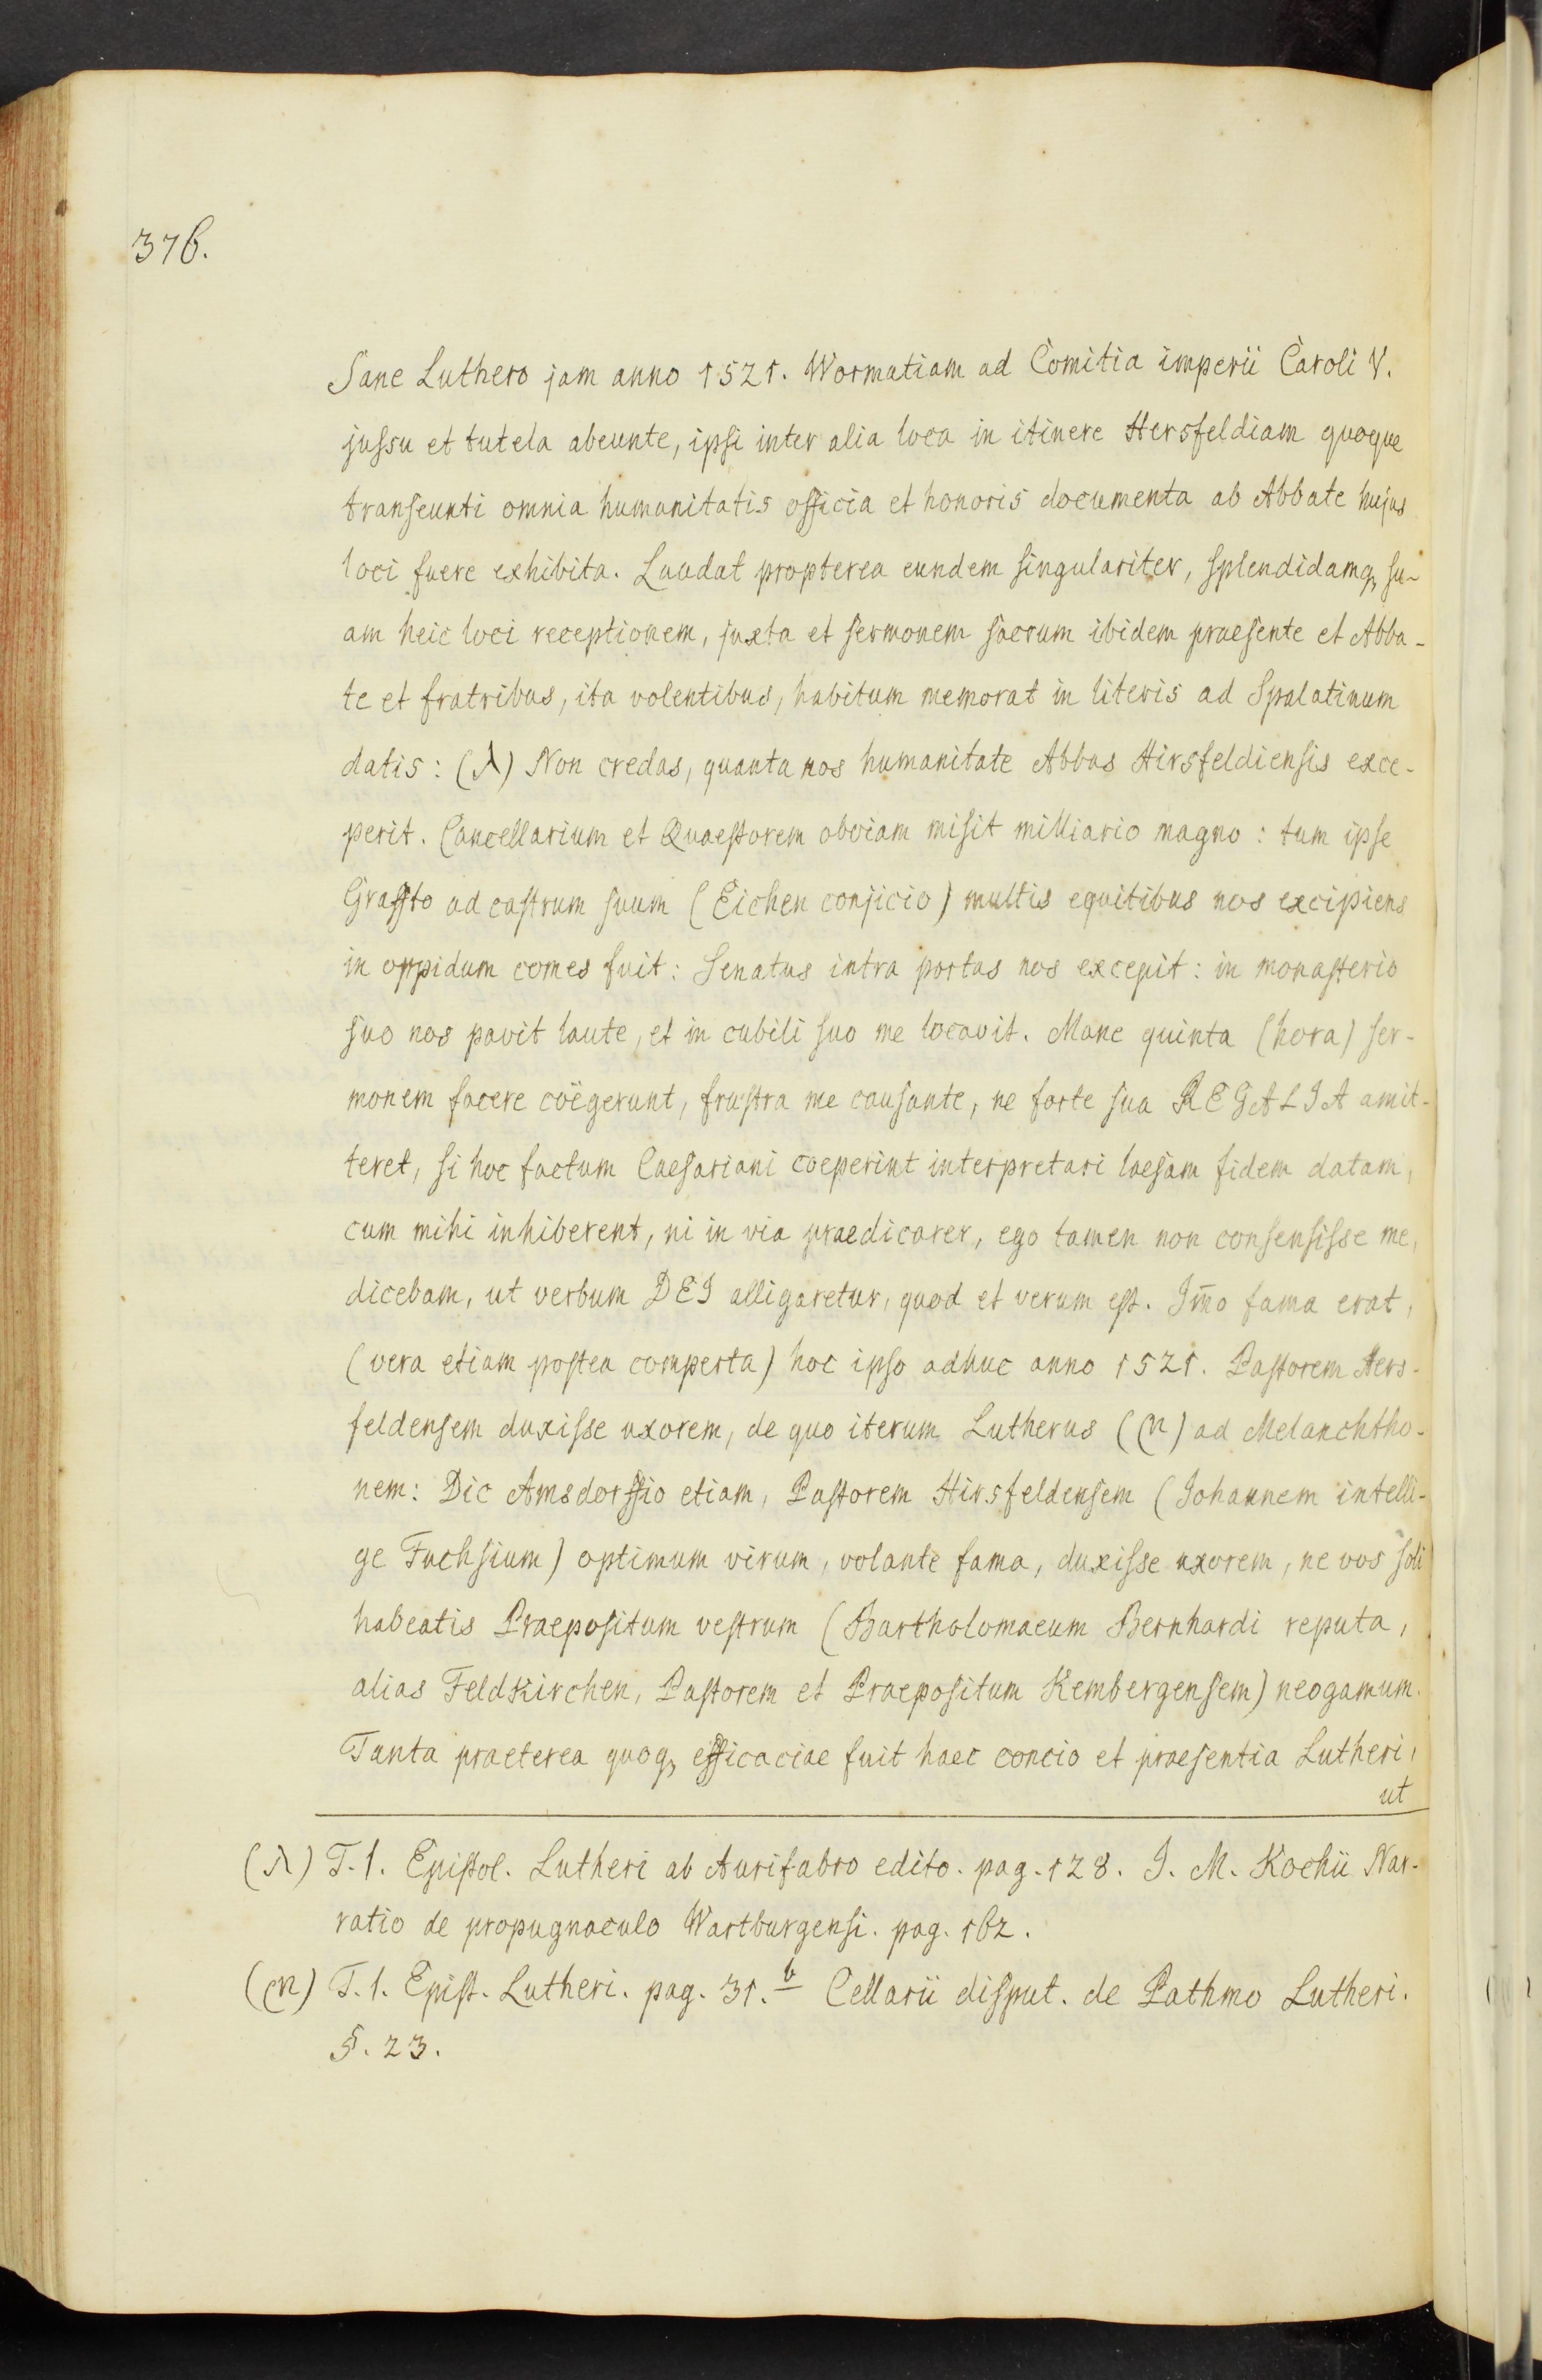 376.
Sane Luthero jam anno 1521. Wormatiam ad Comitia imperii Caroli V.
jussu et tutela abeunte, ipsi inter alia loca in itinere Hersfeldiam quoque
transeunti omnia humanitatis officia et honoris documenta ab Abbate hujus
loci fuere exhibita. Laudat propterea eundem singulariter, splendidamq, su-
am heic loci receptionem, juxta et sermonem sacrum ibidem praesente et Abba-
te et fratribus, ita volentibus, habitum memorat in literis ad Spalatinum
datis: (λ) Non credas, quanta nos humanitate Abbas Hirsfeldiensis exce-
perit. Cancellarium et Quaestorem obviam misit milliario magno: tum ipse
ad castrum suum (Eichen conjicio) multis equitibus nos excipiens
in oppidum comes fuit: Senatus intra portas nos excepit: in monasterio
suo nos pavit laute, et in cubili suo me locavit. Mane quinta (hora) ser-
monem facere coëgerunt, frustra me causante, ne forte sua REGALIA amit-
teret, si hoc factum Caesariani coeperint interpretari laesam fidem datam,
cum mihi inhiberent, ni in via praedicarer, ego tamen non consensisse me,
dicebam, ut verbum DEI alligaretur, quod et verum est. Im̅o fama erat,
(vera etiam postea comperta) hoc ipso adhuc anno 1521. Pastorem Hers-
feldensem duxisse uxorem, de quo iterum Lutherus (m) ad Melanchtho-
nem: Dic Amsdorffio etiam, Pastorem Hirsfeldensem (Johannem intelli-
ge Fuchsium) optimum virum, volante fama, duxisse uxorem, ne vos soli
habeatis Praepositum vestrum (Bartholomaeum Bernhardi reputa,
alias Feldkirchen, Pastorem et Praepositum Kembergensem) neogamum.
Tanta praeterea quoq, efficaciae fuit haec concio et praesentia Lutheri,
ut
(λ) T. 1. Epistol. Lutheri ab Aurifabro edito. pag. 128. J. M. Kochii Nar-
ratio de propugnaculo Wartburgensi. pag. 162.
(m) T. 1. Epist. Lutheri. pag. 31. b Cellarii disput. de Pathmo Lutheri.
§. 23.